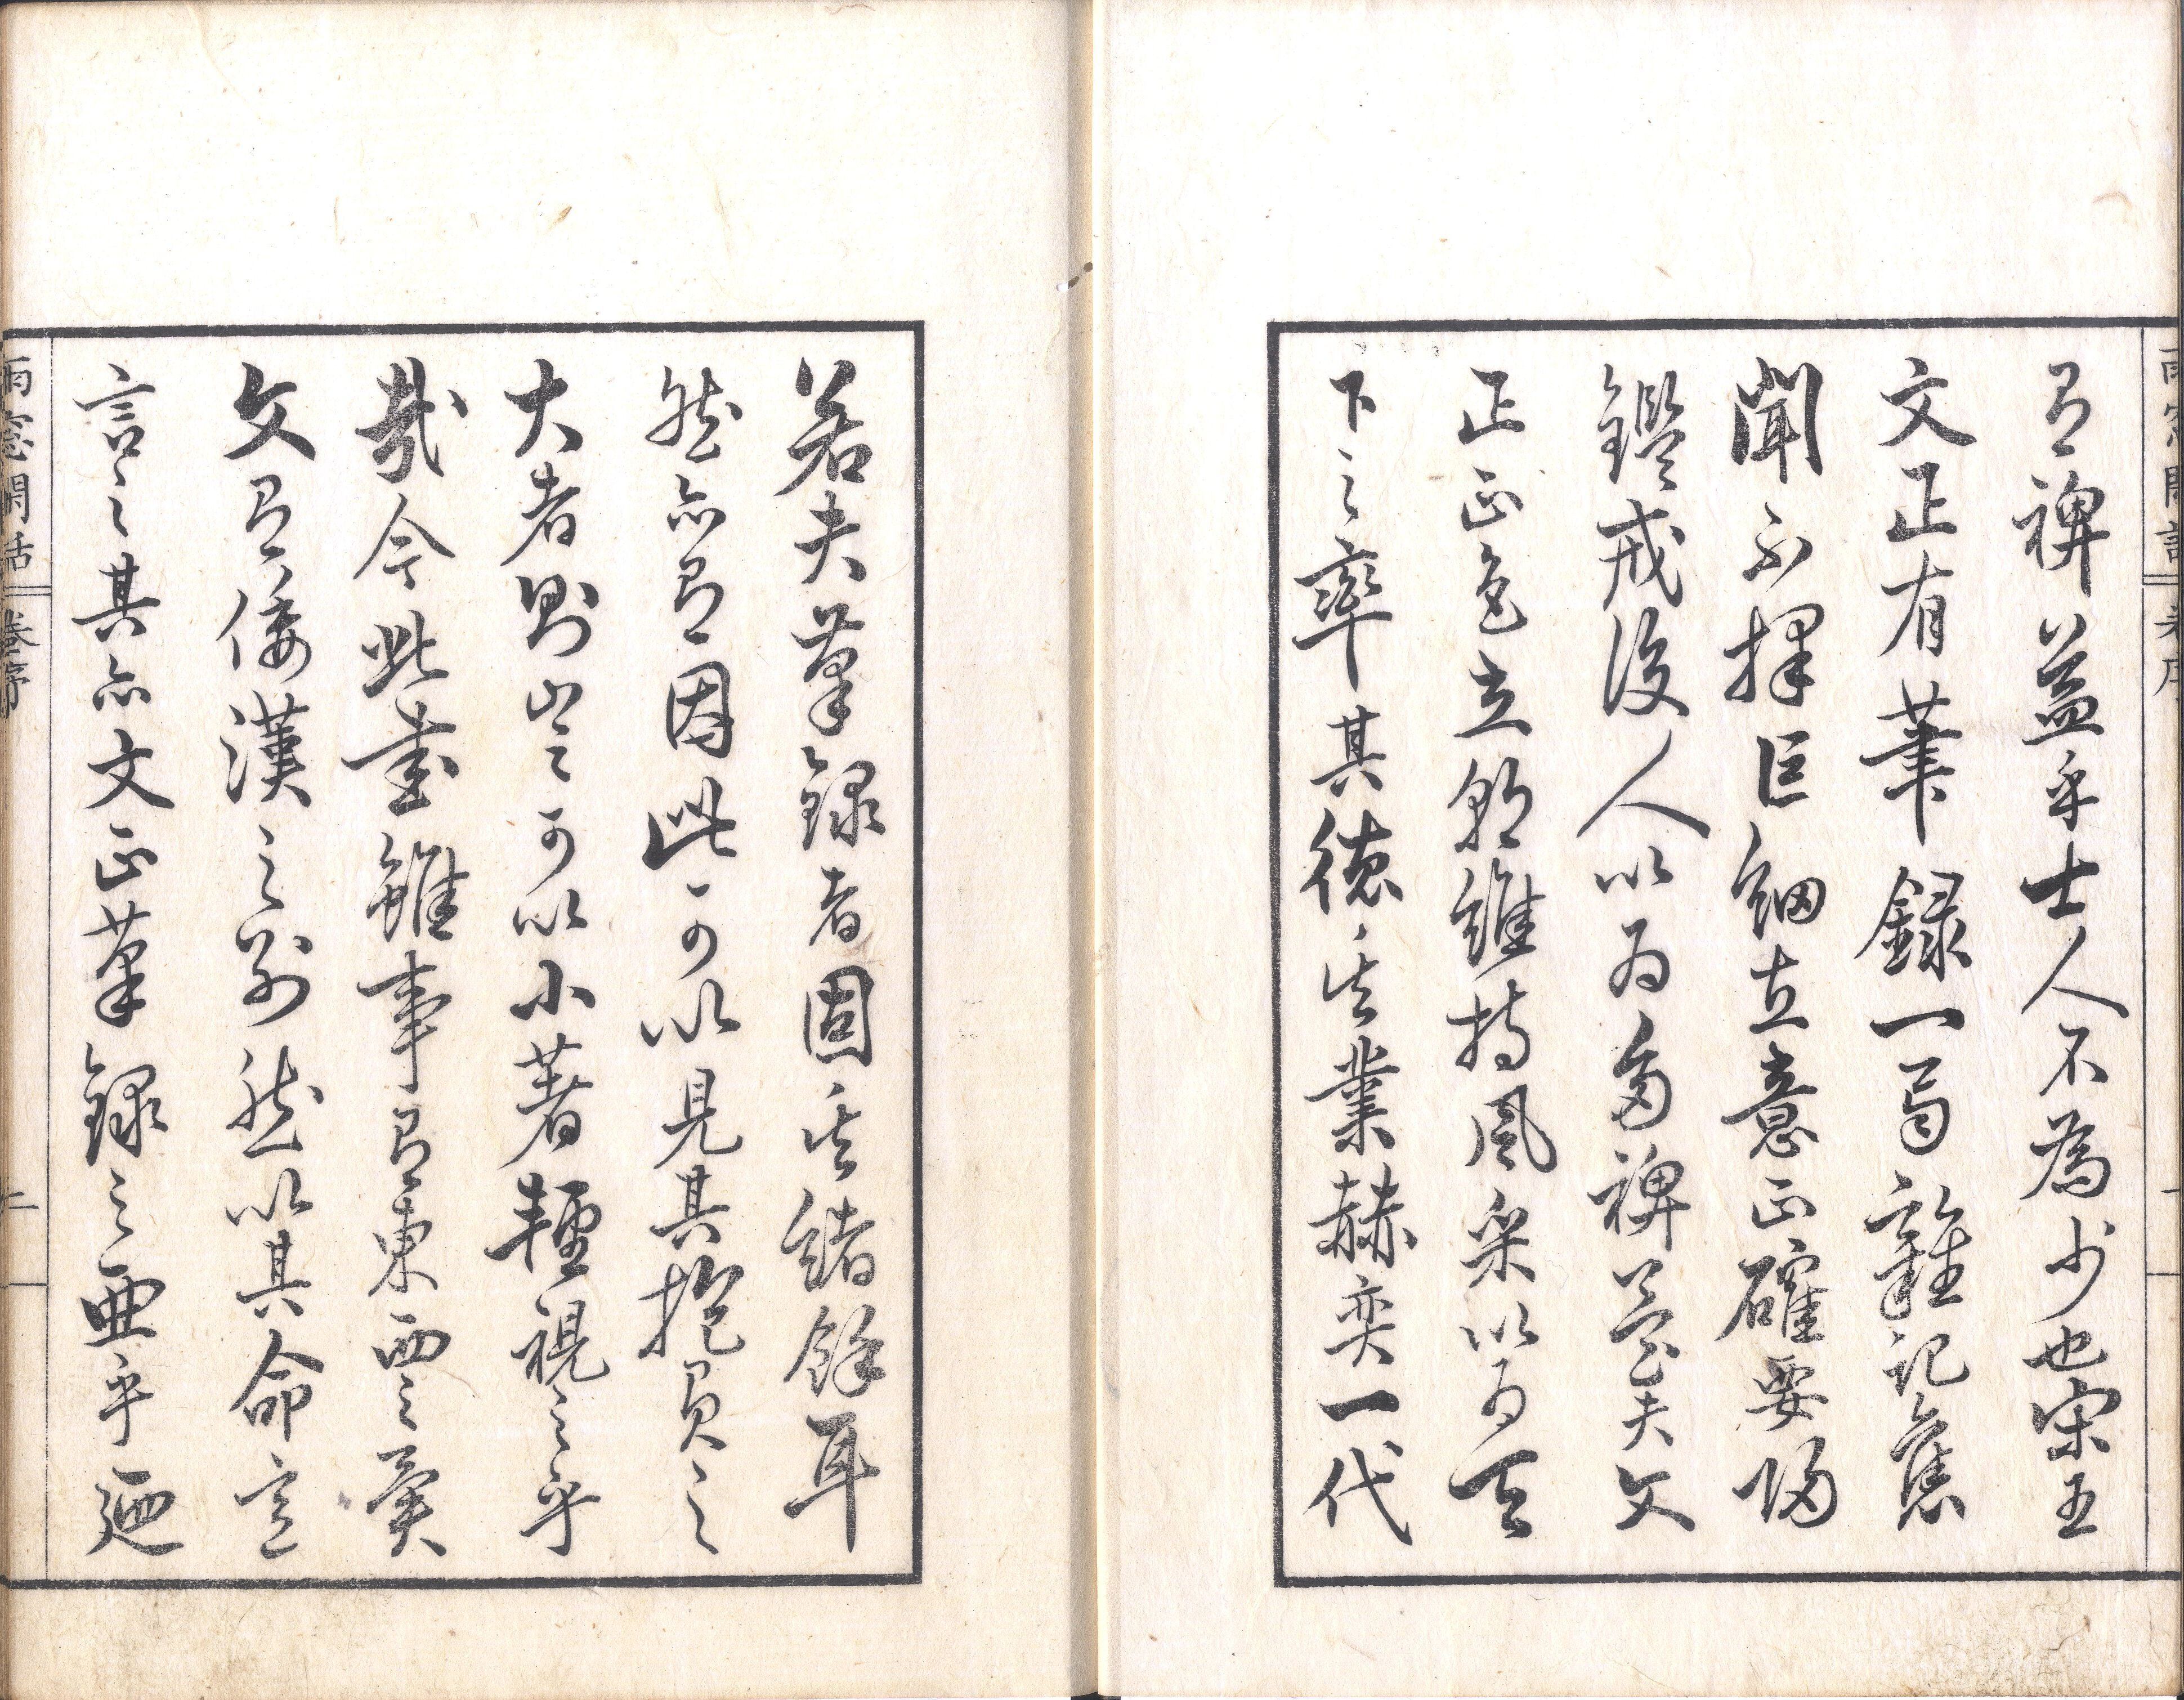 有裨益乎士人不為少也宋王
文正有筆録一局雜記舊
聞不擇巨細立意正確要歸
鑑戒後人以為多裨益夫文
正正色立朝維持風采以為天
下之率其徳其業赫奕一代
若夫筆録者固其緒餘耳
然亦有因此可以見其抱負之
大者則豈可以小著輕視之乎
哉今此書雖事有東西之異
文有倭漢之別然以其命意
言之其亦文正筆録之亜乎廼
雨窓閑話
巻序
二